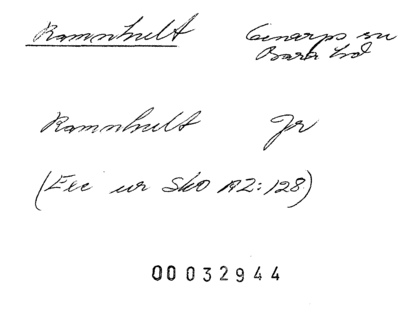 Ramnhult Genarps sn
Bara hd
Ramnhult Gr
(Exc ur SkO A2:128)
00032944